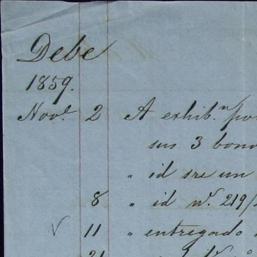 Debe
1859.
Nov.e 2 A exhib.n po
sus 3 bono
" id sre un
8 " id n.o 219/
11 " entregado
21